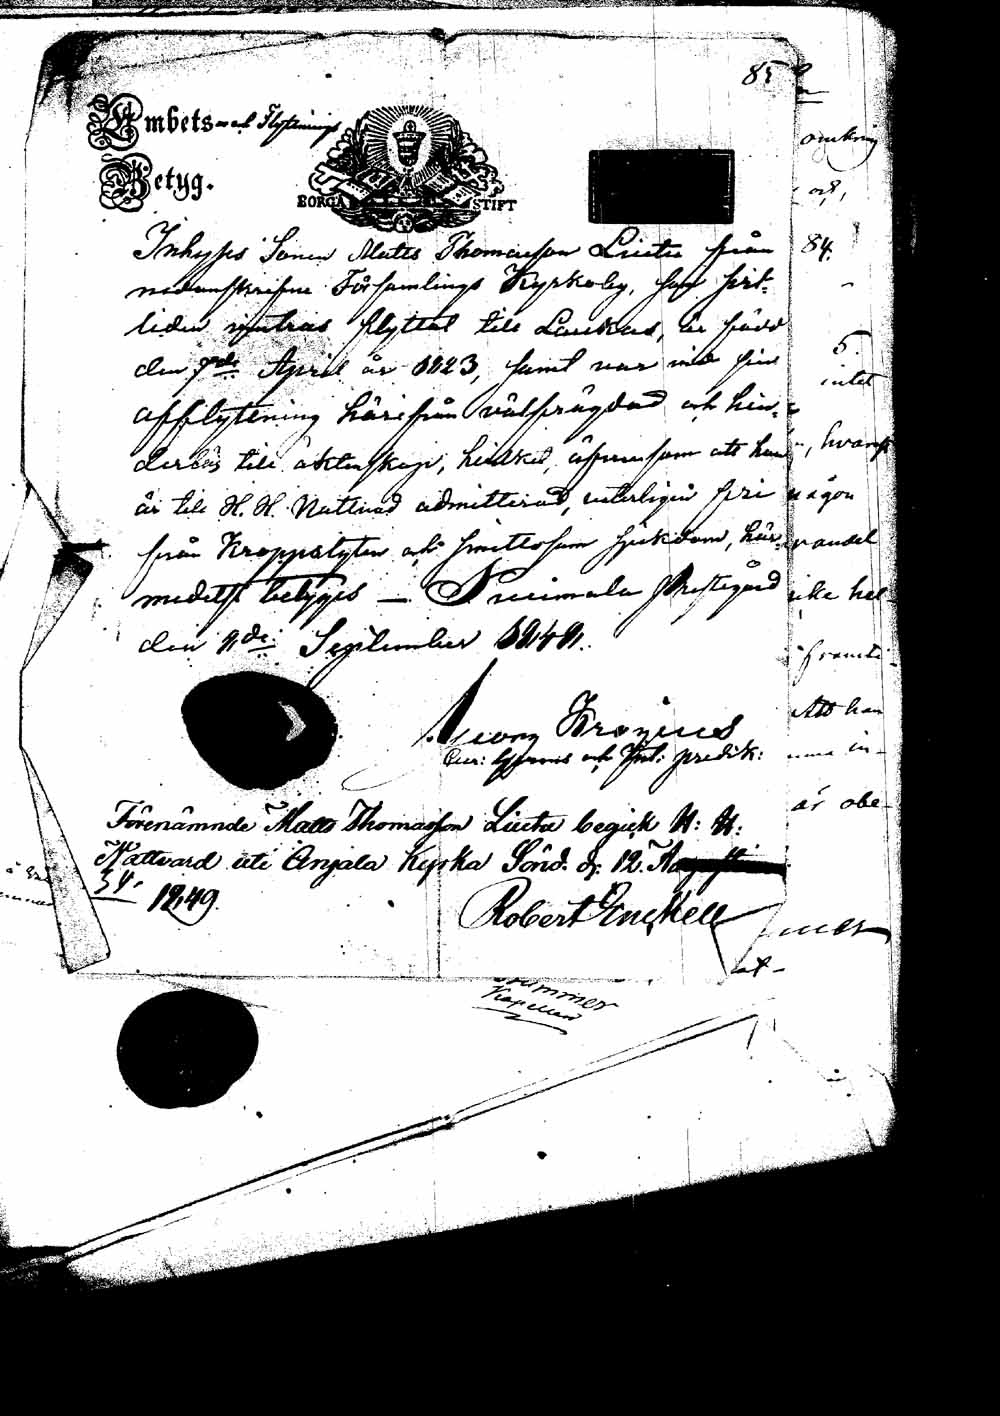 85
Embets- och Flyttnings
Betyg.
BORGÅ STIFT
Inhyses Sonen Matts Thomasson Liuta från
nedanskrifne Församlings Kyrkoby, som sist-
liden vintras flyttat till Laukas, är född
den 7de April år 1823, samt var vid sin
afflyttning härifrån välfrägdad och hin-
derlös till äktenskap, hvilket, äfvensom att han
är till H. H. Nattvard admitterad, veterligen fri
från Kroppslyten och smittosam sjukdom, här-
medelst betygas — Prestegård
den de September 1849.
Georg Krogius
Förenämnde Matts Thomasson Liuta begick H: H:
Nattvard uti Anjala Kyrka Sönd. d: 12. Augusti
1849.
Robert Enckell
omkring
och,
84.
5.
intet
hvars
någon
vandel
icke hel-
framti-
Att han
in-
är obe-
Kapellan